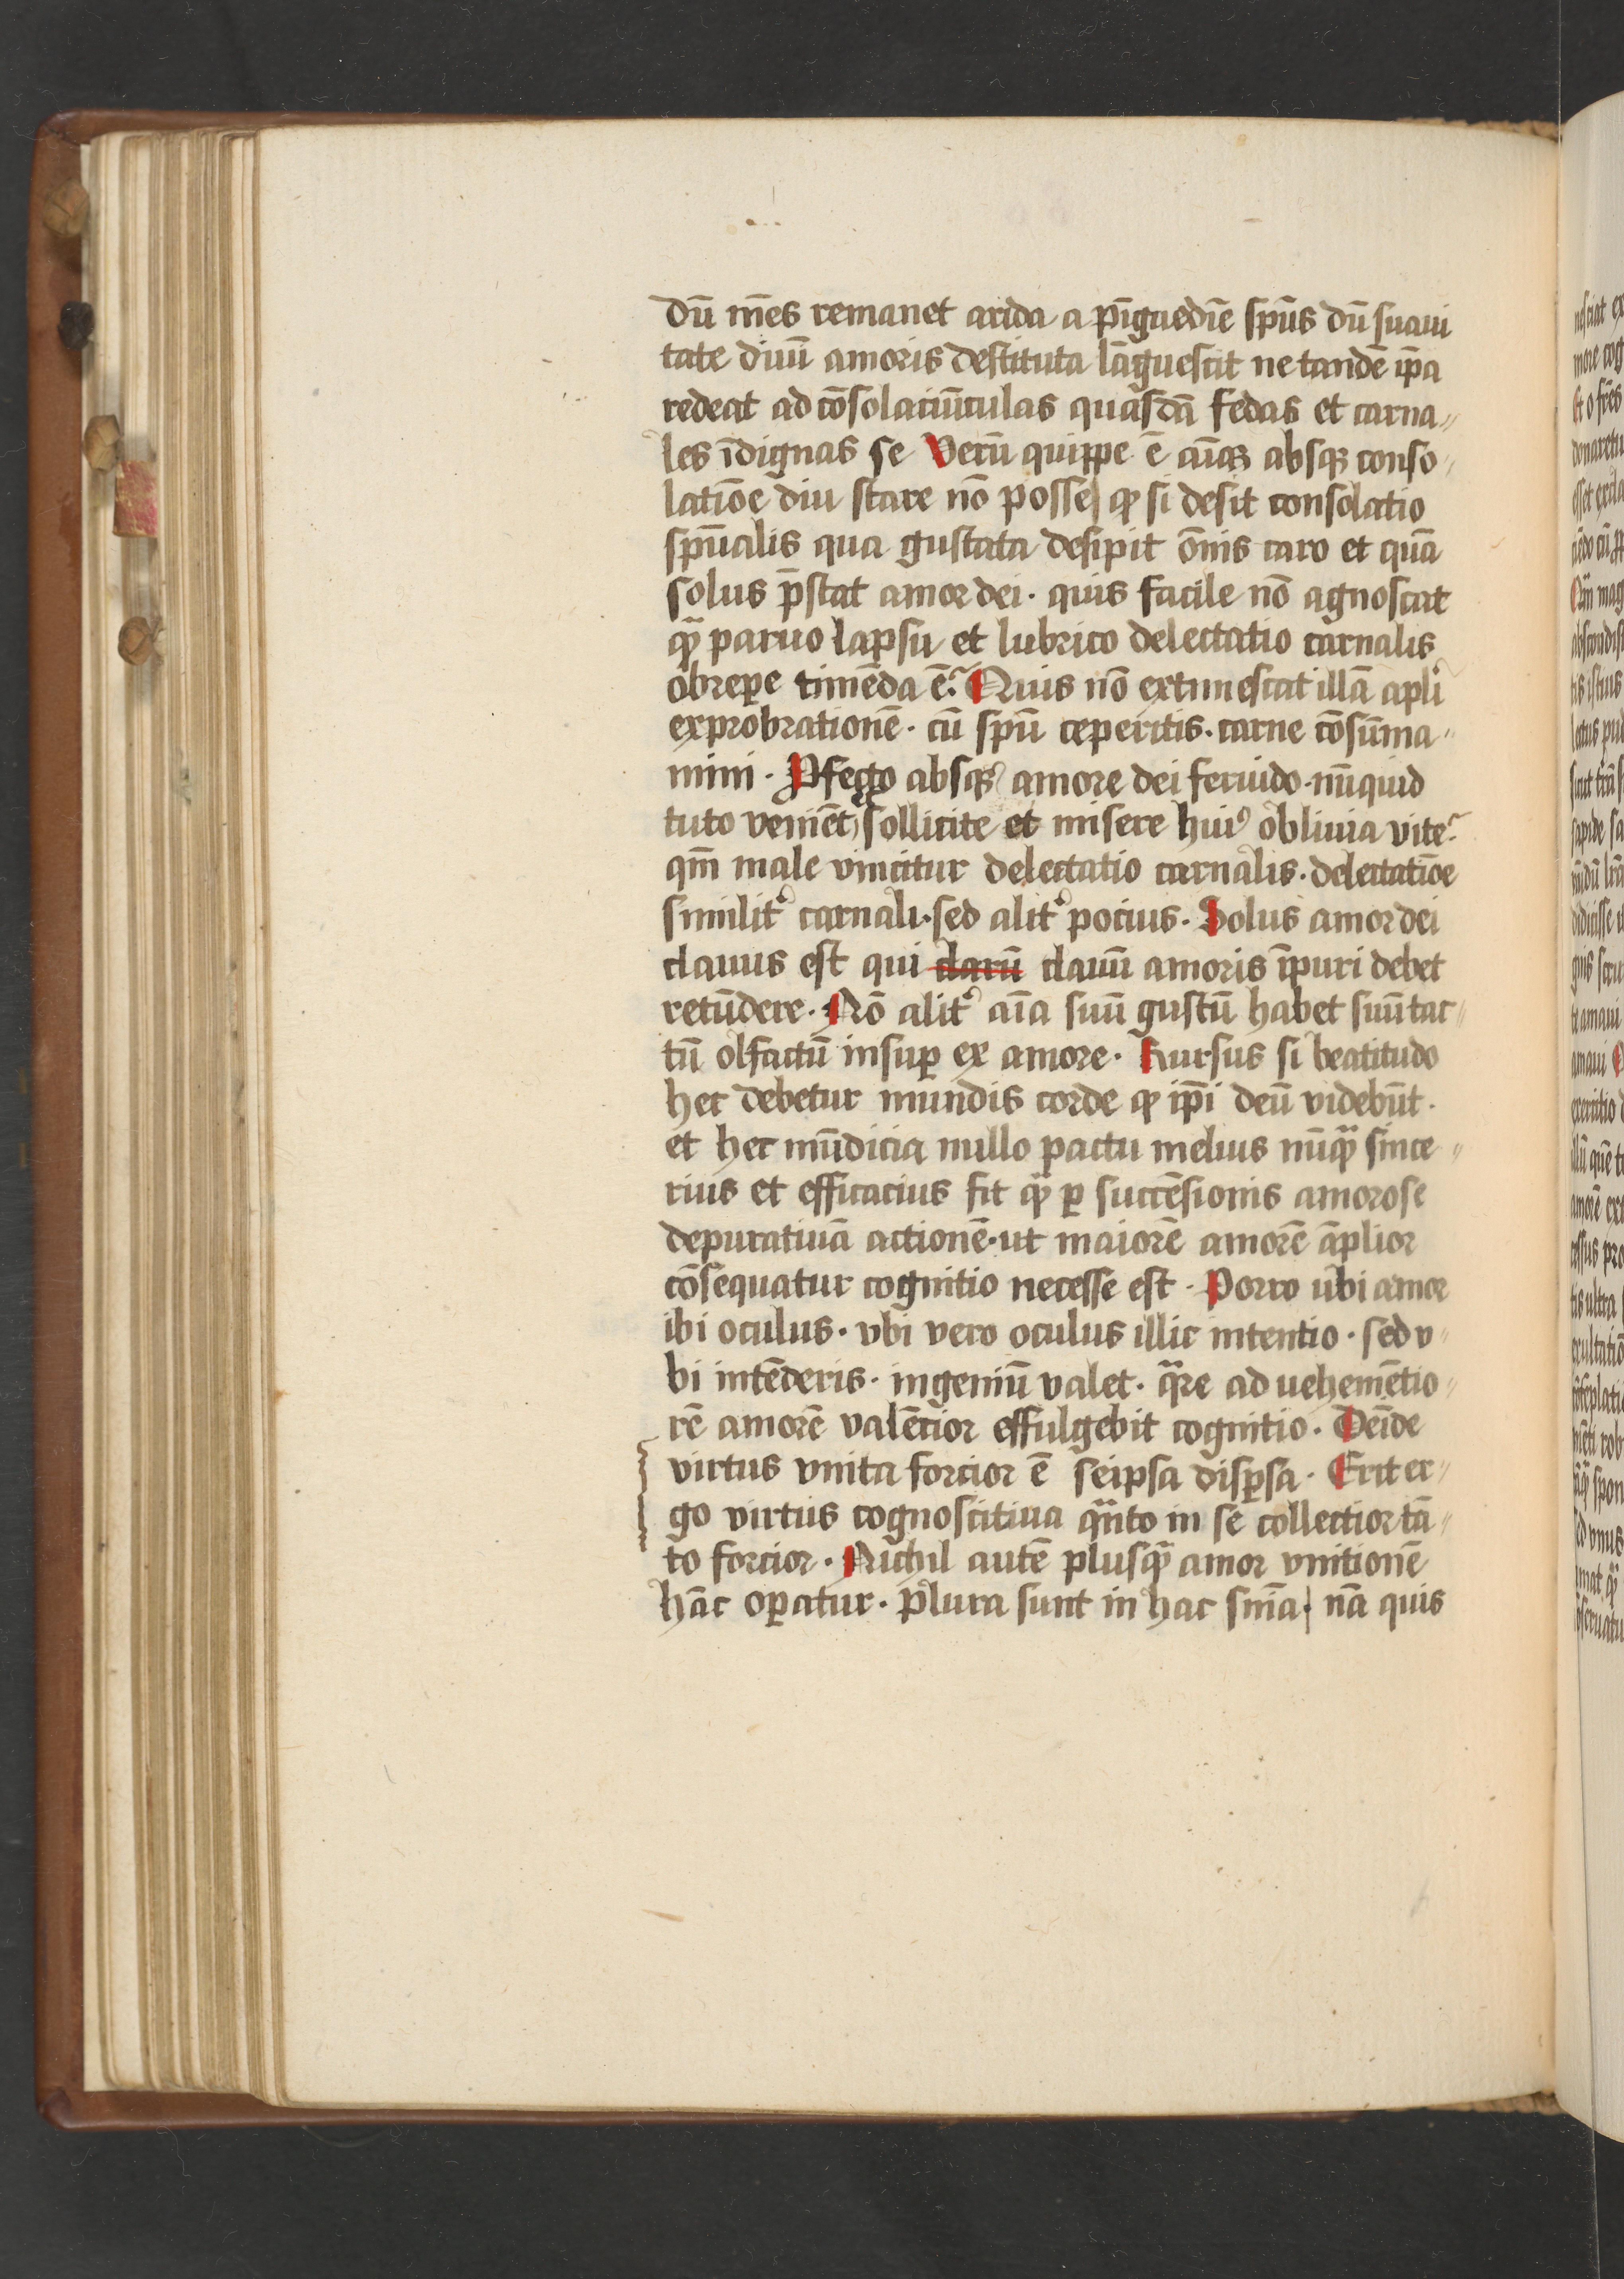 dū mēs remanet arida a pīguedīe spūs dū suaui
tate diuī amoris destituta lāguescit ne tandē ip̄a
redeat ad cōsolaciūculas quasdā fedas et carna〃
les īdignas se Verū quippe ē aīaꝫ absqꝫ conso〃
latiōe diu stare nō posse ꝙ si desit consolatio
spūalis qua gustata desipit ōnis caro et quā
solus p̄stat amor dei · quis facile nō agnoscat
qͣꝫ paruo lapsu et lubrico delectatio carnalis
obreꝑe timēda ē? Quis nō extimescat illā apli
exprobrationē · cū spū ceperitis · carne cōsūma〃
mini · absqꝫ amore dei feruido · nūquid
tuto veniēt sollicite et misere huiꝰ obliuia vite?
qm̄ male vincitur delectatio carnalis · delectatiōe
similit᷑ carnali · sed alit᷑ pocius · Solus amor dei
clauus est qui clarū clauū amoris īpuri debet
retūdere · Nō alit᷑ aīa suū gustū habet suū tac〃
tū olfactū insuꝑ ex amore · Rursus si beatitudo
hec debetur mundis corde ꝙ ip̄i deū videbūt ·
et hec mūdicia nullo pactu melius nūqͣꝫ since〃
rius et efficacius fit qͣꝫ ꝑ succēsionis amorose
depuratiuā actionē · ut maiorē amorē āplior
cōsequatur cognitio necesse est · Porro ubi amor
ibi oculus · vbi vero oculus illic intentio · sed v〃
bi intēderis · ingeniū valet · qͣre ad uehemētio〃
rē amorē valēcior effulgebit cognitio · Deīde
virtus vnita forcior ē seipsa disꝑsa · Erit er〃
go virtus cognoscitiua qͣnto in se collectior tā〃
to forcior · Nichil autē plusqͣꝫ amor vnitionē
hāc oꝑatur · plura sunt in hac snīa · nā quis